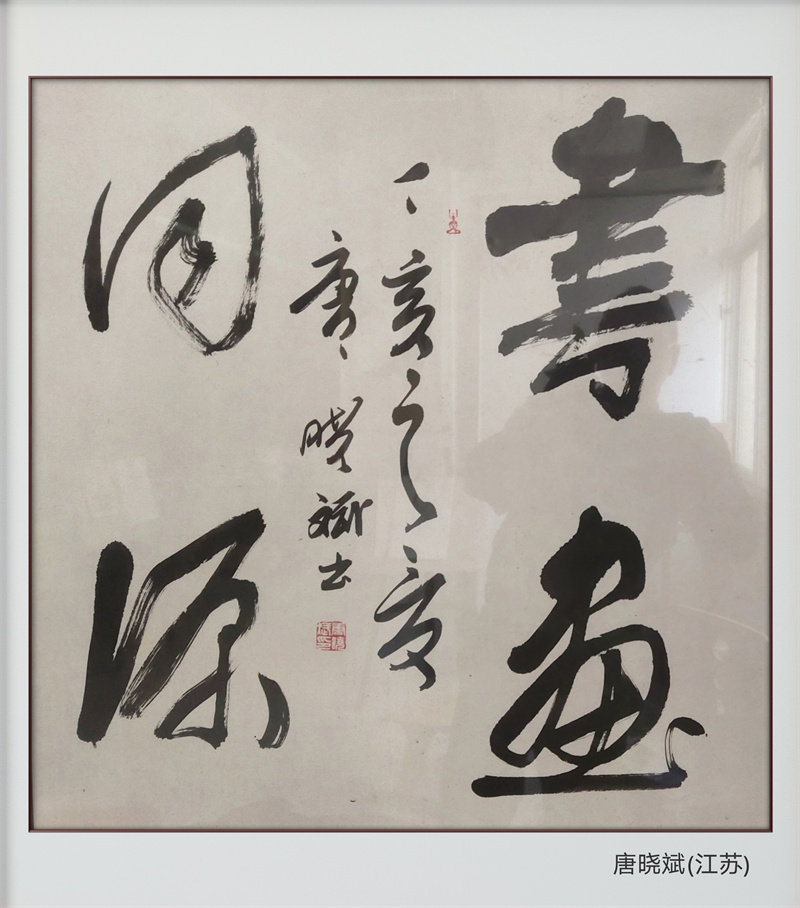 書畫
同源
丁亥之夏
唐曉斌书
唐晓斌(江苏)